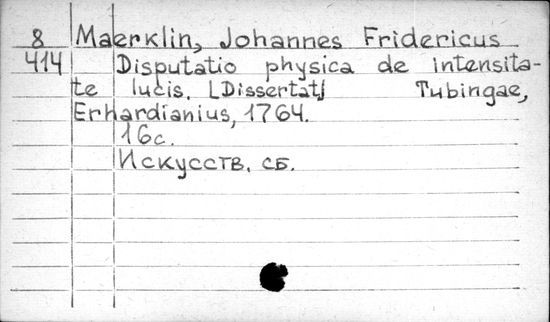 8 Maerklin, Johannes Fridericus
414 Disputatio physica de intensita-
te lucis. [Dissertat] Tubingae,
Erhardianius, 1764.
16с.
Искусств. сб.